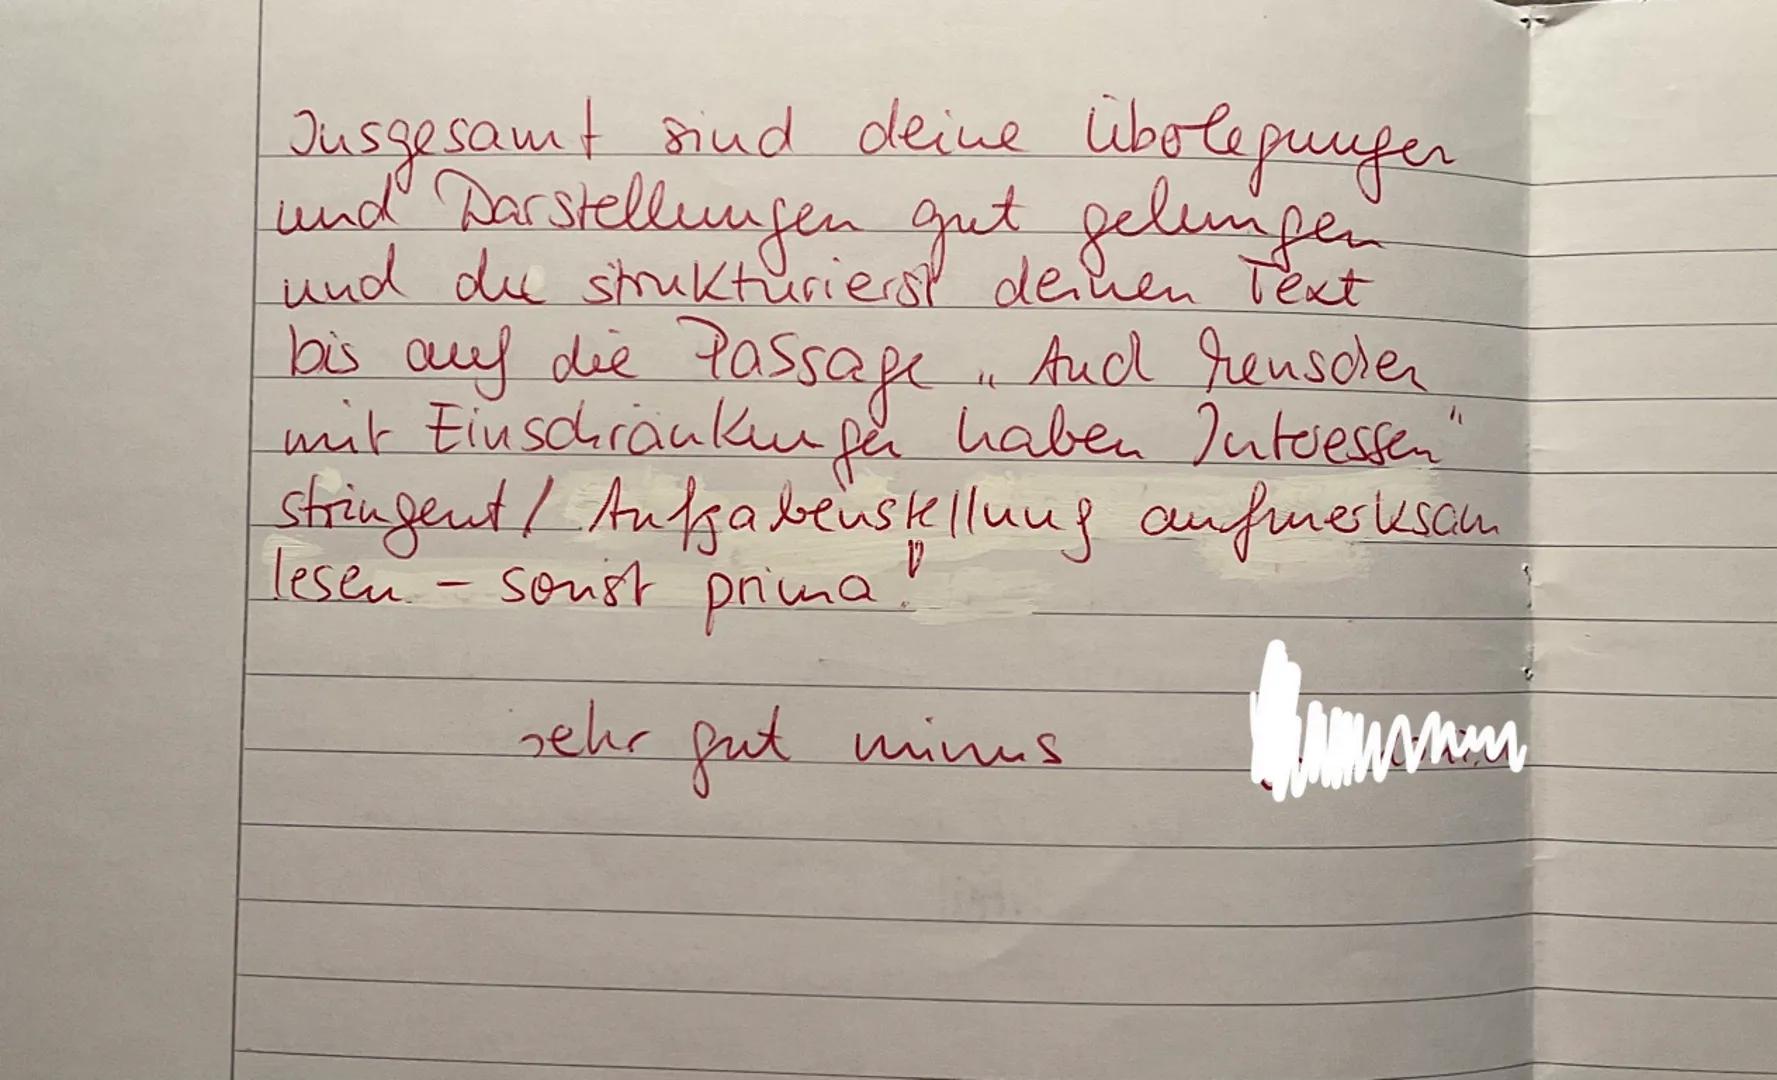 Insgesamt sind deine Überlegungen
und Darstellungen gut gelungen
und du strukturierst deinen Text
bis auf die Passage „Auch Menschen
mit Einschränkungen haben Interessen"
stringent / Aufgabenstellung aufmerksam
lesen – sonst prima!
sehr gut minus